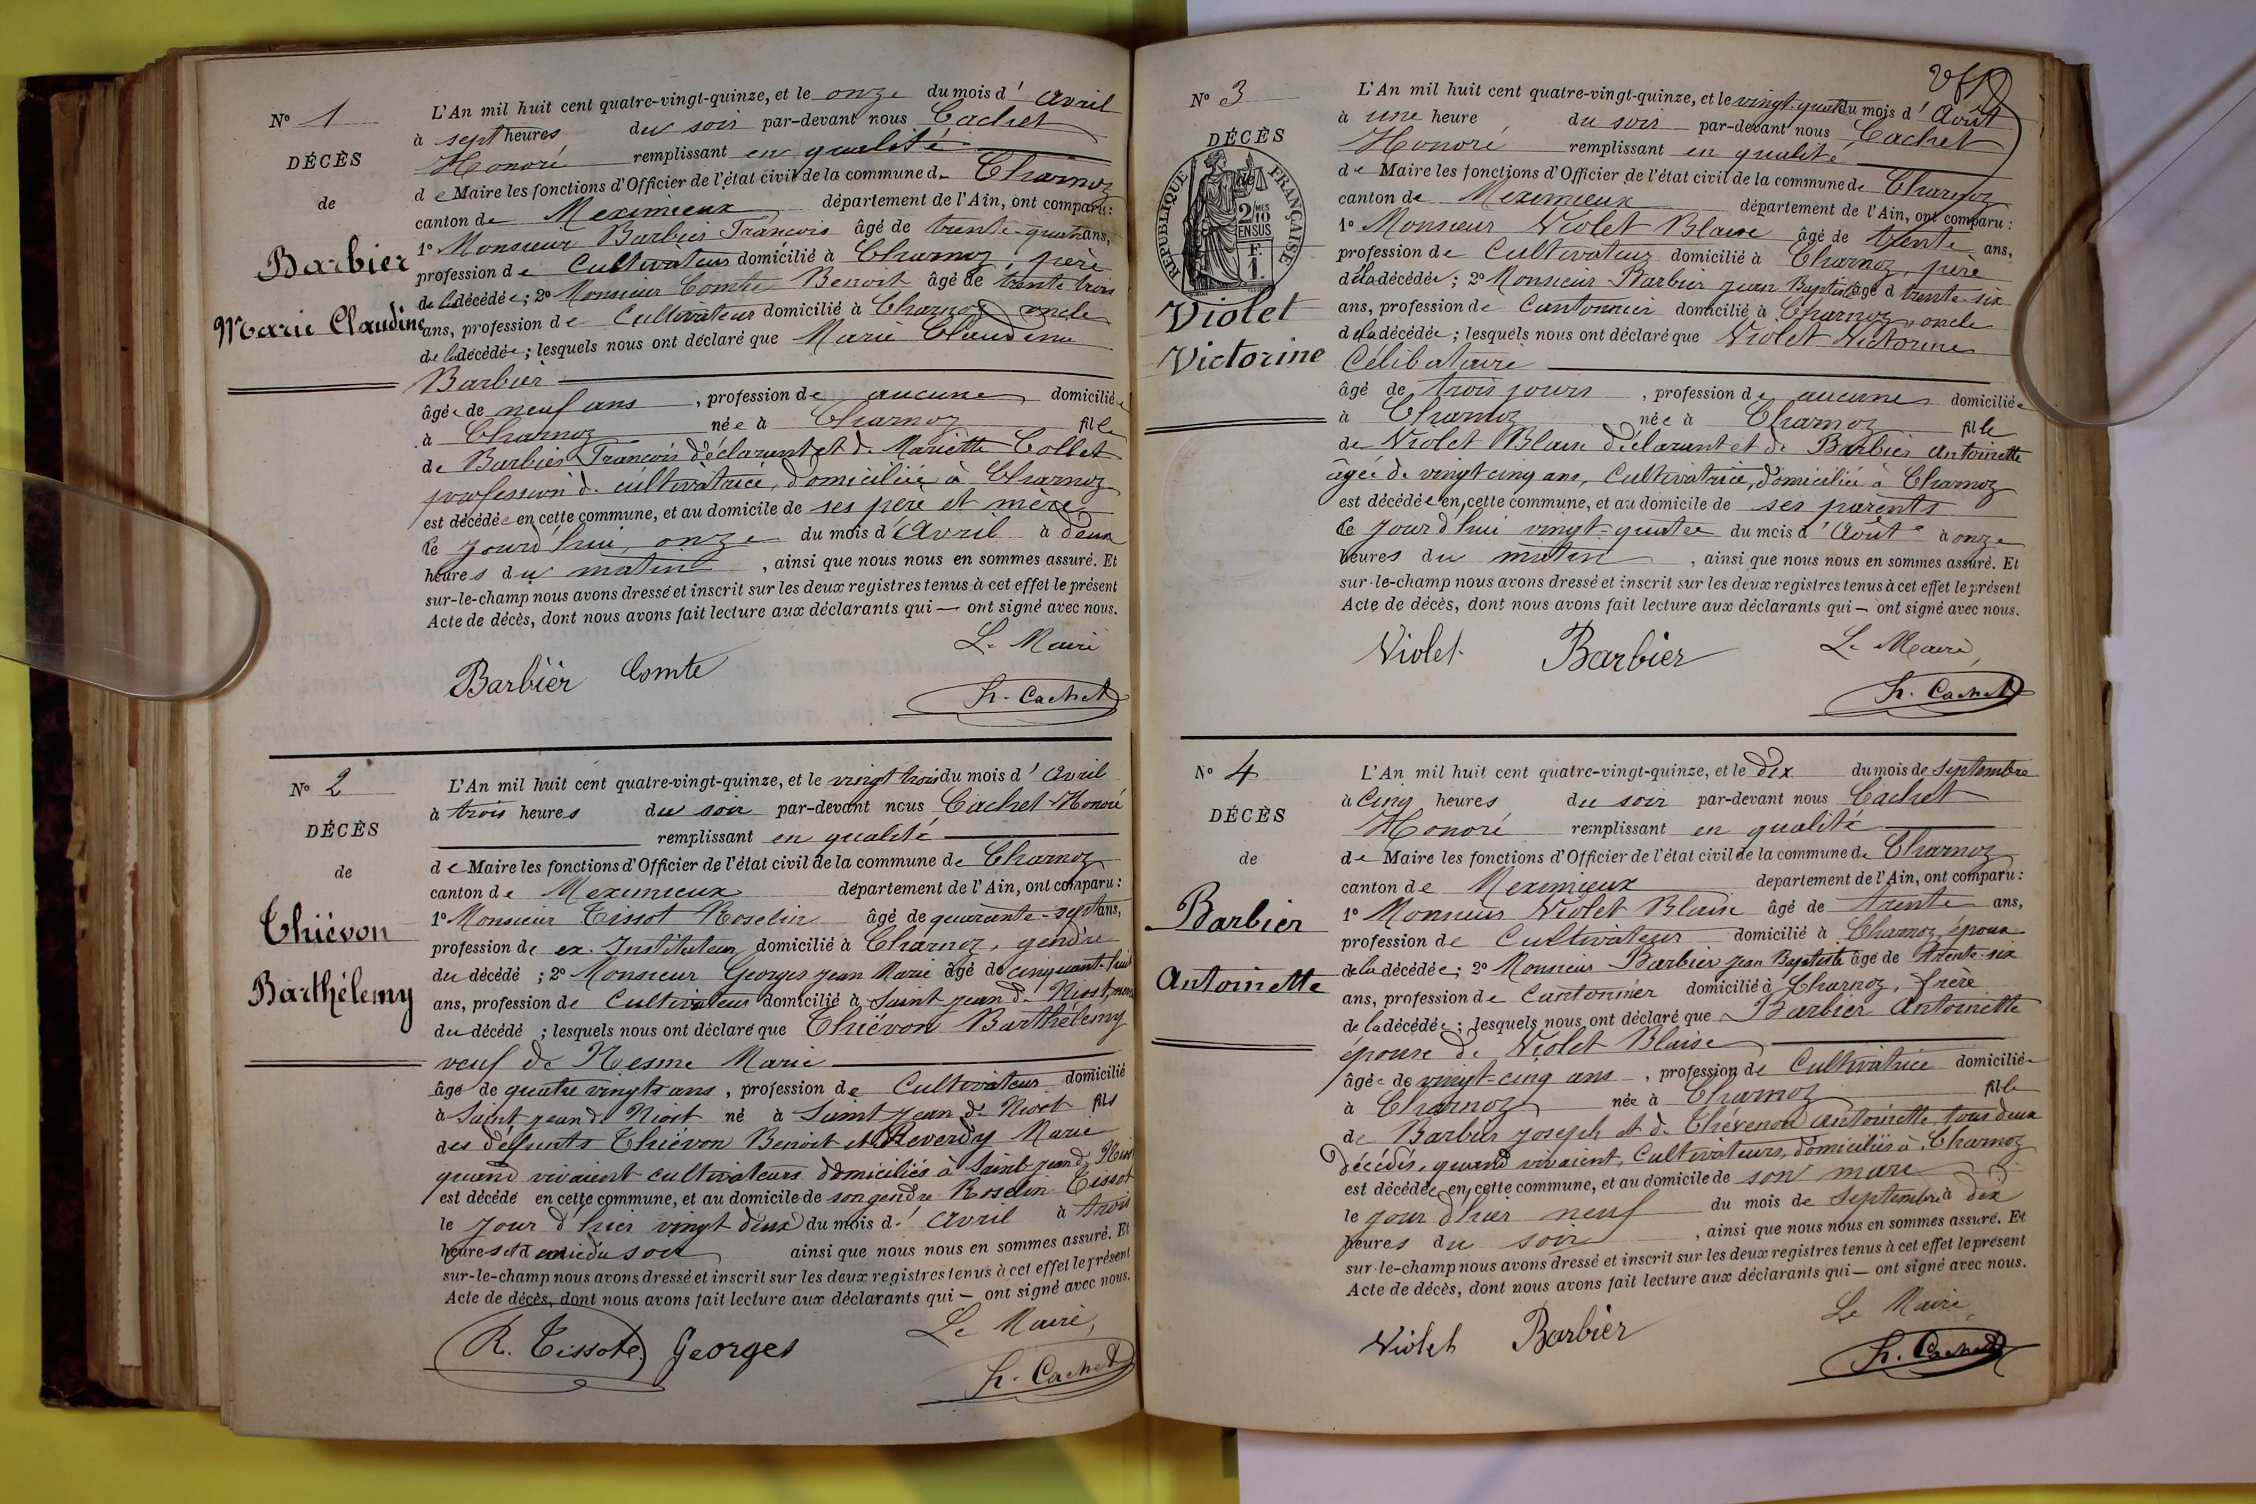 N° 1
DÉCÈS
de
Barbier
Marie Claudine
L'An mil huit cent quatre-vingt-quinze, et le onze du mois d'Avril
à sept heures du soir par-devant nous Cachet
Honoré remplissant en qualité
de Maire les fonctions d'Officier de l'état civil de la commune de Charnoz
canton de Meximieux département de l'Ain, ont comparu:
1° Monsieur Barbier François âgé de trente-quatre ans,
profession de Cultivateur domicilié à Charnoz, père
de la décédée; 2° Monsieur Comte Benoit âgé de trente trois
ans, profession de Cultivateur domicilié à Charnoz oncle
de la décédée; lesquels nous ont déclaré que Marie Claudine
Barbier
âgée de neuf ans, profession de aucune domiciliée
à Charnoz née à Charnoz fille
de Barbier François déclarant et de Mariette Collet
profession de cultivatrice, domiciliée à Charnoz
est décédée en cette commune, et au domicile de ses père et mère
le jourd'hui onze du mois d'Avril à deux
heures du matin, ainsi que nous nous en sommes assuré. Et
sur-le-champ nous avons dressé et inscrit sur les deux registres tenus à cet effet le présent
Acte de décès, dont nous avons fait lecture aux déclarants qui — ont signé avec nous.
Le Maire
Barbier Comte
H. Cachet
N° 2
DÉCÈS
de
Thiévon
Barthélemy
L'An mil huit cent quatre-vingt-quinze, et le vingt trois du mois d'Avril
à trois heures du soir par-devant nous Cachet Honoré
remplissant en qualité
de Maire les fonctions d'Officier de l'état civil de la commune de Charnoz
canton de Meximieux département de l'Ain, ont comparu:
1° Monsieur Tissot Roselin âgé de quarante-sept ans,
profession de ex. Instituteur domicilié à Charnoz, gendre
du décédé; 2° Monsieur Georges Jean Marie âgé de cinquante-huit
ans, profession de Cultivateur domicilié à Saint Jean de Niost,
du décédé; lesquels nous ont déclaré que Thiévon Barthélemy
veuf de Nesme Marie
âgé de quatre vingts ans, profession de Cultivateur domicilié
à Saint Jean de Niost né à Saint Jean de Niost fils
des défunts Thiévon Benoit et Reverdy Marie
quand vivaient cultivateurs domiciliés à Saint Jean de Niost
est décédé en cette commune, et au domicile de son gendre Roselin Tissot
le jour d'hier vingt deux du mois d'Avril à trois
heures et demie du soir ainsi que nous nous en sommes assuré. Et
sur-le-champ nous avons dressé et inscrit sur les deux registres tenus à cet effet le présent
Acte de décès, dont nous avons fait lecture aux déclarants qui — ont signé avec nous.
Le Maire,
R. Tissot Georges
H. Cachet
N° 3
DÉCÈS
de
RÉPUBLIQUE FRANÇAISE
2/10 MES
EN SUS
F.
1.
Violet
Victorine
L'An mil huit cent quatre-vingt-quinze, et le vingt-quatre du mois d'Août
à une heure du soir par-devant nous Cachet
Honoré remplissant en qualité
de Maire les fonctions d'Officier de l'état civil de la commune de Charnoz
canton de Meximieux département de l'Ain, ont comparu:
1° Monsieur Violet Blaise âgé de trente ans,
profession de Cultivateur domicilié à Charnoz, père
de la décédée; 2° Monsieur Barbier Jean Baptiste âgé d trente-six
ans, profession de Cantonnier domicilié à Charnoz, oncle
de la décédée; lesquels nous ont déclaré que Violet Victorine
Célibataire
âgé de trois jours, profession de aucune domiciliée
à Charnoz née à Charnoz fille
de Violet Blaise déclarant et de Barbier Antoinette
âgée de vingt cinq ans, Cultivatrice, domiciliée à Charnoz
est décédée en cette commune, et au domicile de ses parents
le jourd'hui vingt-quatre du mois d'Août à onze
heures du matin, ainsi que nous nous en sommes assuré. Et
sur-le-champ nous avons dressé et inscrit sur les deux registres tenus à cet effet le présent
Acte de décès, dont nous avons fait lecture aux déclarants qui — ont signé avec nous.
Le Maire,
Violet Barbier
H. Cachet
N° 4
DÉCÈS
de
Barbier
Antoinette
L'An mil huit cent quatre-vingt-quinze, et le dix du mois de Septembre
à Cinq heures du soir par-devant nous Cachet
Honoré remplissant en qualité
de Maire les fonctions d'Officier de l'état civil de la commune de Charnoz
canton de Meximieux département de l'Ain, ont comparu:
1° Monsieur Violet Blaise âgé de trente ans,
profession de Cultivateur domicilié à Charnoz, époux
de la décédée; 2° Monsieur Barbier Jean Baptiste âgé de trente-six
ans, profession de Cantonnier domicilié à Charnoz, frère
de la décédée; lesquels nous ont déclaré que Barbier Antoinette
épouse de Violet Blaise
âgée de vingt-cinq ans, profession de Cultivatrice domiciliée
à Charnoz née à Charnoz fille
de Barbier Joseph et de Thévenon Antoinette, tous deux
décédés, quand vivaient, Cultivateurs, domiciliés à Charnoz
est décédée en cette commune, et au domicile de son mari
le jour d'hier neuf du mois de Septembre à dix
heures du soir, ainsi que nous nous en sommes assuré. Et
sur-le-champ nous avons dressé et inscrit sur les deux registres tenus à cet effet le présent
Acte de décès, dont nous avons fait lecture aux déclarants qui — ont signé avec nous.
Le Maire,
Violet Barbier
H. Cachet